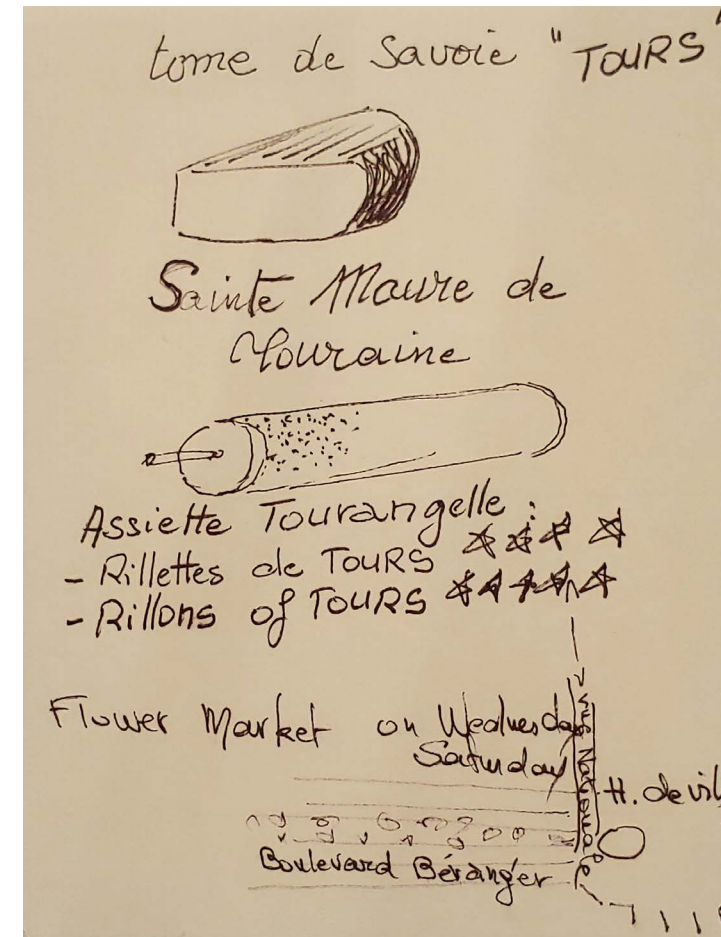 tome de Savoie "TOURS"
Sainte Maure de
Touraine
Assiette Tourangelle :
- Rillettes de TOURS
- Rillons of TOURS
Flower Market on Wednesday
Saturday
rue Nationale
H. de vil
Boulevard Béranger